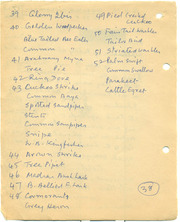 39 Glossy Ibis
40 Golden Woodpecker
Blue Tailed Bee Eater
Common "
41 Brahminy Myna
Tree Pie
42 Ring Dove
43 Cuckoo Shrike
Common Myna
Spotted Sandpiper
Stints
Common Sandpiper
Snipe
W.B. Kingfisher
44 Brown Shrike
45 Tree Pipit
46 Median Egret
47 B. Bellied F. Hawk
48 Cormorants
Grey Heron
49 Pied Crested Cuckoo
50 Fan Tail Warbler
Tailor Bird
51 Streated Warbler
52 Palm Swift
Common Swallow
Cattle Egret
38